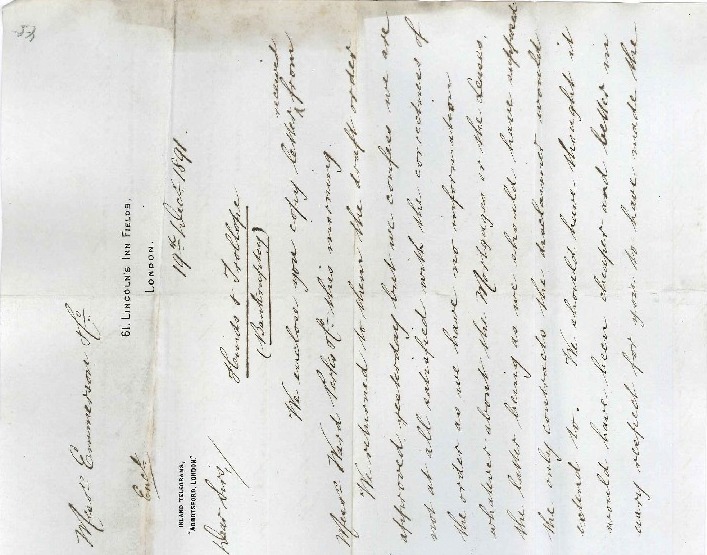 61, LINCOLN'S INN FIELDS,
LONDON.
INLAND TELEGRAMS,
"ABBOTSFORD, LONDON."
19th Decr. 1891
Dear Sirs/
Hinds & Trollope
(Bankruptcy)
received
We enclose you copy letter ^ from
Messrs Ward Perks &c this morning
We returned to them the draft order
approved yesterday but we confess we are
not at all satisfied with the correctness of
the order as we have no information
whatever about the Mortgages or the Leases,
the latter being as we should have supposed
the only contracts the disclaimer would
extend to. We should have thought it
would have been cheaper and better in
every respect for you to have made the
Messrs Emmerson &c.